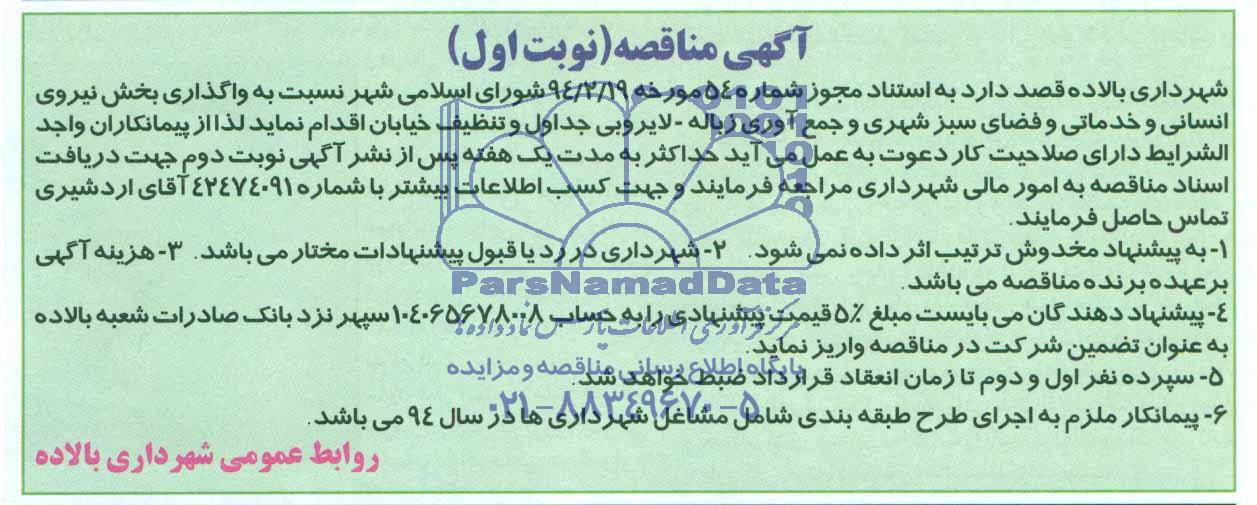 آگهی مناقصه (نوبت اول)
شهرداری بالاده قصد دارد به استناد مجوز شماره ٥٤ مورخه ٩٤/٢/١٩ شورای اسلامی شهر نسبت به واگذاری بخش نیروی
انسانی و خدماتی و فضای سبز شهری و جمع آوری زباله -لایروبی جداول و تنظیف خیابان اقدام نماید لذا از پیمانکاران واجد
الشرایط دارای صلاحیت کار دعوت به عمل می آید حداکثر به مدت یک هفته پس از نشر آگهی نوبت دوم جهت دریافت
اسناد مناقصه به امور مالی شهرداری مراجعه فرمایند و جهت کسب اطلاعات بیشتر با شماره ٤٢٤٧٤٠٩١ آقای اردشیری
تماس حاصل فرمایند.
١- به پیشنهاد مخدوش ترتیب اثر داده نمی شود. ٢- شهرداری در رد یا قبول پیشنهادات مختار می باشد. ٣- هزینه آگهی
برعهده برنده مناقصه می باشد.
ParsNamadData
٤- پیشنهاد دهندگان می بایست مبلغ ٥٪ قیمت پیشنهادی را به حساب ٠١٠٤٠٦٥٦٧٨٠٠٨ سپهر نزد بانک صادرات شعبه بالاده
مرکز فرآوری اطلاعات پارس نماد داده ها
به عنوان تضمین شرکت در مناقصه واریز نماید.
پایگاه اطلاع رسانی مناقصه و مزایده
٥- سپرده نفر اول و دوم تا زمان انعقاد قرارداد ضبط خواهد شد.
٠٢١-٨٨٣٤٩٦٧٠-٥
٦- پیمانکار ملزم به اجرای طرح طبقه بندی شامل مشاغل شهرداری ها در سال ٩٤ می باشد.
روابط عمومی شهرداری بالاده